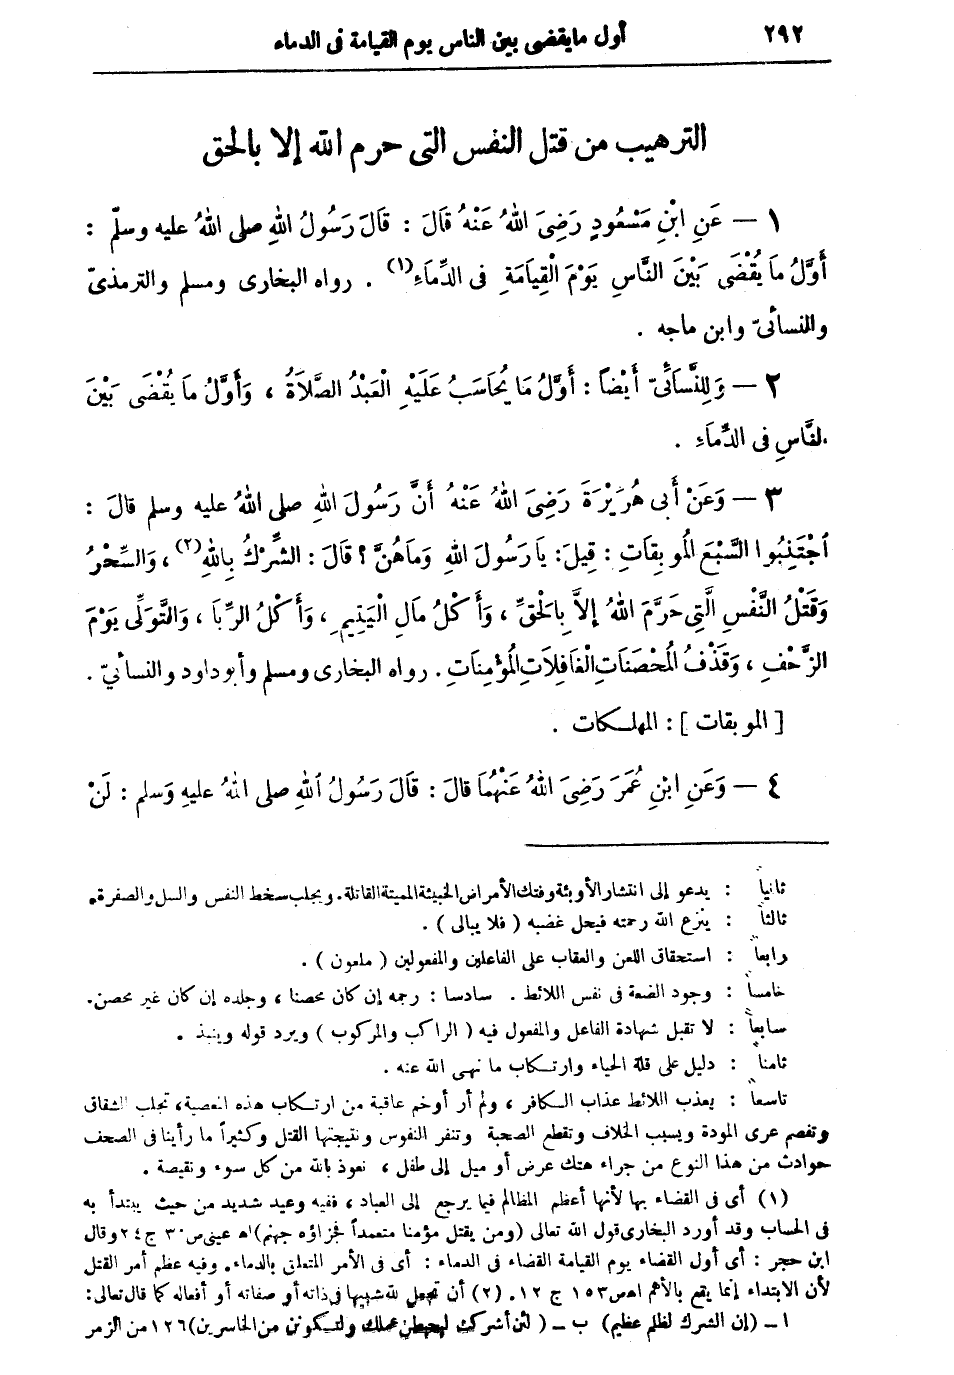 ٢٩٢ أول مايقضى بين الناس يوم القيامة فى الدماء
الترهيب من قتل النفس التى حرم الله إلا بالحق
١ — عَنِ ابْنِ مَسْعُودٍ رَضِىَ اللهُ عَنْهُ قَالَ : قَالَ رَسُولُ اللهِ صلى اللهُ عليه وسلّم :
أَوَّلُ مَا يُقْضَى بَيْنَ النَّاسِ يَوْمَ الْقِيَامَةِ فى الدِّمَاءِ(١) . رواه البخارى ومسلم والترمذىّ
والنسائىّ وابن ماجه .
٢ — وَلِلنَّسَائِىّ أَيْضاً : أَوَّلُ مَا يُحَاسَبُ عَلَيْهِ الْعَبْدُ الصَّلاَةُ ، وَأَوَّلُ مَا يُقْضَى بَيْنَ
النَّاسِ فى الدِّمَاءِ .
٣ — وَعَنْ أَبِى هُرَيْرَةَ رَضِىَ اللهُ عَنْهُ أَنَّ رَسُولَ اللهِ صلى اللهُ عليه وسلم قالَ :
اجْتَنِبُوا السَّبْعَ المُوبِقَاتِ : قِيلَ : يَا رَسُولَ اللهِ وَمَاهُنَّ ؟ قالَ : الشِّرْكُ بِاللهِ(٢) ، وَالسِّحْرُ
وَقَتْلُ النَّفْسِ الَّتِى حَرَّمَ اللهُ إِلاَّ بِالْحَقِّ ، وَأَكْلُ مَالِ الْيَتِيمِ ، وَأَكْلُ الرِّبَا ، وَالتَّوَلِّى يَوْمَ
الزَّحْفِ ، وَقَذْفُ المُحْصَنَاتِ الْغَافِلاَتِ المُؤْمِنَاتِ . رواه البخارى ومسلم وأبو داود والنسائىّ .
[ الموبقات ] : المهلكات .
٤ — وَعَنِ ابْنِ عُمَرَ رَضِىَ اللهُ عَنْهُمَا قالَ : قَالَ رَسُولُ اللهِ صلى اللهُ عليهِ وَسلم : لَنْ
ثانياً : يدعو إلى انتشار الأوبئة وفتك الأمراض الخبيثة المميتة القاتلة . ويجلب سخط النفس والسل والصفرة .
ثالثاً : ينزع الله رحمته فيحل غضبه ( فلا يبالى ) .
رابعاً : استحقاق اللعن والعقاب على الفاعلين والمفعولين ( ملعون ) .
خامساً : وجود الضعة فى نفس اللائط . سادسا : رجمه إن كان محصنا ، وجلده إن كان غير محصن .
سابعاً : لا تقبل شهادة الفاعل والمفعول فيه ( الراكب والمركوب ) ويرد قوله وينبذ .
ثامناً : دليل على قلة الحياء وارتكاب ما نهى الله عنه .
تاسعاً : يعذب اللائط عذاب الكافر ، ولم أر أوخم عاقبة من ارتكاب هذه المعصية ، تجلب الشقاق
وتفصم عرى المودة ويسبب الخلاف وتقطع الصحبة وتنفر النفوس ونتيجتها القتل وكثيراً ما رأينا فى الصحف
حوادث من هذا النوع من جراء هتك عرض أو ميل إلى طفل ، نعوذ بالله من كل سوء ونقيصة .
(١) أى فى القضاء بها لأنها أعظم المظالم فيما يرجع إلى العباد ، ففيه وعيد شديد من حيث يبتدأ به
فى الحساب وقد أورد البخارى قول الله تعالى (ومن يقتل مؤمنا متعمداً فجزاؤه جهنم) اه عينى ص ٣٠ ج ٢٤ وقال
ابن حجر : أى أول القضاء يوم القيامة القضاء فى الدماء : أى فى الأمر المتعلق بالدماء . وفيه عظم أمر القتل
لأن الابتداء إنما يقع بالأهم اه ص ١٥٣ ج ١٢ . (٢) أن تجعل لله شبيها فى ذاته أو صفاته أو أفعاله كما قال تعالى :
ا ـ (إن الشرك لظلم عظيم) ب ـ ( لئن أشركت ليحبطن عملك ولتكونن من الخاسرين) ١٢٦ من الزمر